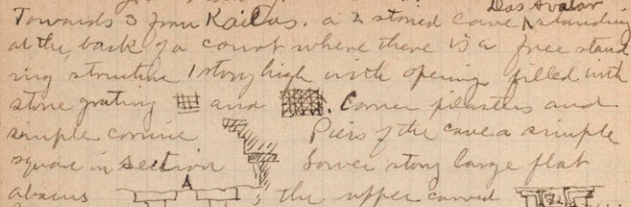 Das Avatar
Towards 3 from Kailas. a 2 storied cave standing
at the back of a court where there is a free stand
ing structure 1 story high with openings filled with
stone grating and . Corner pilasters and
simple cornice Piers of the cave a simple
square in section Lower story large flat
abacus A ; the upper curved